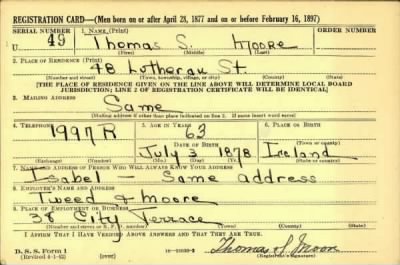 REGISTRATION CARD—(Men born on or after April 28, 1877 and on or before February 16, 1897)
SERIAL NUMBER
1. NAME (Print)
U 49 Thomas S. Moore
(First) (Middle) (Last)
2. PLACE OF RESIDENCE (Print)
48 Lutheran St
(Number and street) (Town, township, village, or city) (County) (State)
[THE PLACE OF RESIDENCE GIVEN ON THE LINE ABOVE WILL DETERMINE LOCAL BOARD
JURISDICTION; LINE 2 OF REGISTRATION CERTIFICATE WILL BE IDENTICAL]
3. MAILING ADDRESS
Same
[Mailing address if other than place indicated on line 2. If same insert word same]
4. TELEPHONE
5. AGE IN YEARS
6. PLACE OF BIRTH
1997R
63
DATE OF BIRTH
July 3 1878
Ireland
(Exchange) (Number) (Mo.) (Day) (Yr.) (State or country)
7. NAME AND ADDRESS OF PERSON WHO WILL ALWAYS KNOW YOUR ADDRESS
Isabel — Same address
8. EMPLOYER'S NAME AND ADDRESS
Tweed & Moore
9. PLACE OF EMPLOYMENT OR BUSINESS
38 City Terrace
(Number and street or R. F. D. number) (Town) (County) (State)
I AFFIRM THAT I HAVE VERIFIED ABOVE ANSWERS AND THAT THEY ARE TRUE.
D. S. S. Form 1
(Revised 4-1-42) (over)
Thomas S Moore